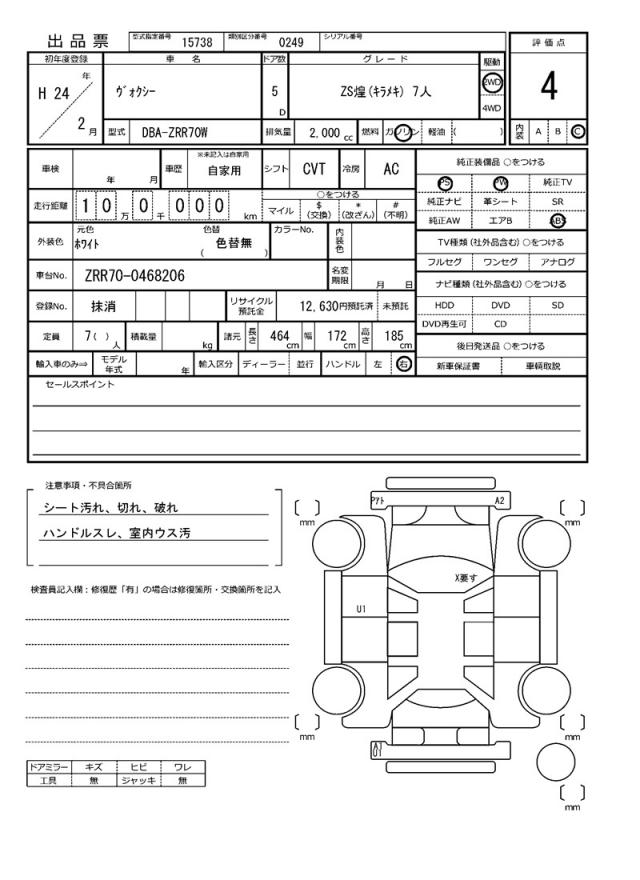 出品票 型式指定番号 15738 類別区分番号 0249 シリアル番号
評価点
4
内装 A B C
初年度登録 車名 ドア数 グレード 駆動
H 24 年 2 月
ヴォクシー 5 D ZS煌(キラメキ) 7人 2WD
4WD
型式 DBA-ZRR70W 排気量 2,000 cc 燃料 ガソリン 軽油 ( )
車検 年 月 車歴 ※未記入は自家用 自家用 シフト CVT 冷房 AC
走行距離 1 0 万 0 千 0 0 0 km
○をつける
マイル $(交換) *(改ざん) #(不明)
外装色 元色 ホワイト 色替 ( 色替無 ) カラーNo. 内装色
車台No. ZRR70-0468206 名変期限 月 日
登録No. 抹消 リサイクル預託金 12,630円預託済 未預託
定員 7( )人 積載量 kg 諸元 長さ 464 cm 幅 172 cm 高さ 185 cm
輸入車のみ⇒ モデル年式 年 輸入区分 ディーラー 並行 ハンドル 左 右
純正装備品 ○をつける
PS PW 純正TV
純正ナビ 革シート SR
純正AW エアB ABS
TV種類(社外品含む) ○をつける
フルセグ ワンセグ アナログ
ナビ種類(社外品含む) ○をつける
HDD DVD SD
DVD再生可 CD
後日発送品 ○をつける
新車保証書 車輌取説
セールスポイント
注意事項・不具合箇所
シート汚れ、切れ、破れ
ハンドルスレ、室内ウス汚
検査員記入欄:修復歴「有」の場合は修復箇所・交換箇所を記入
ドアミラー キズ ヒビ ワレ
工具 無 ジャッキ 無
Pアト A2
mm mm
X要す
U1
mm mm
A1
U1
mm